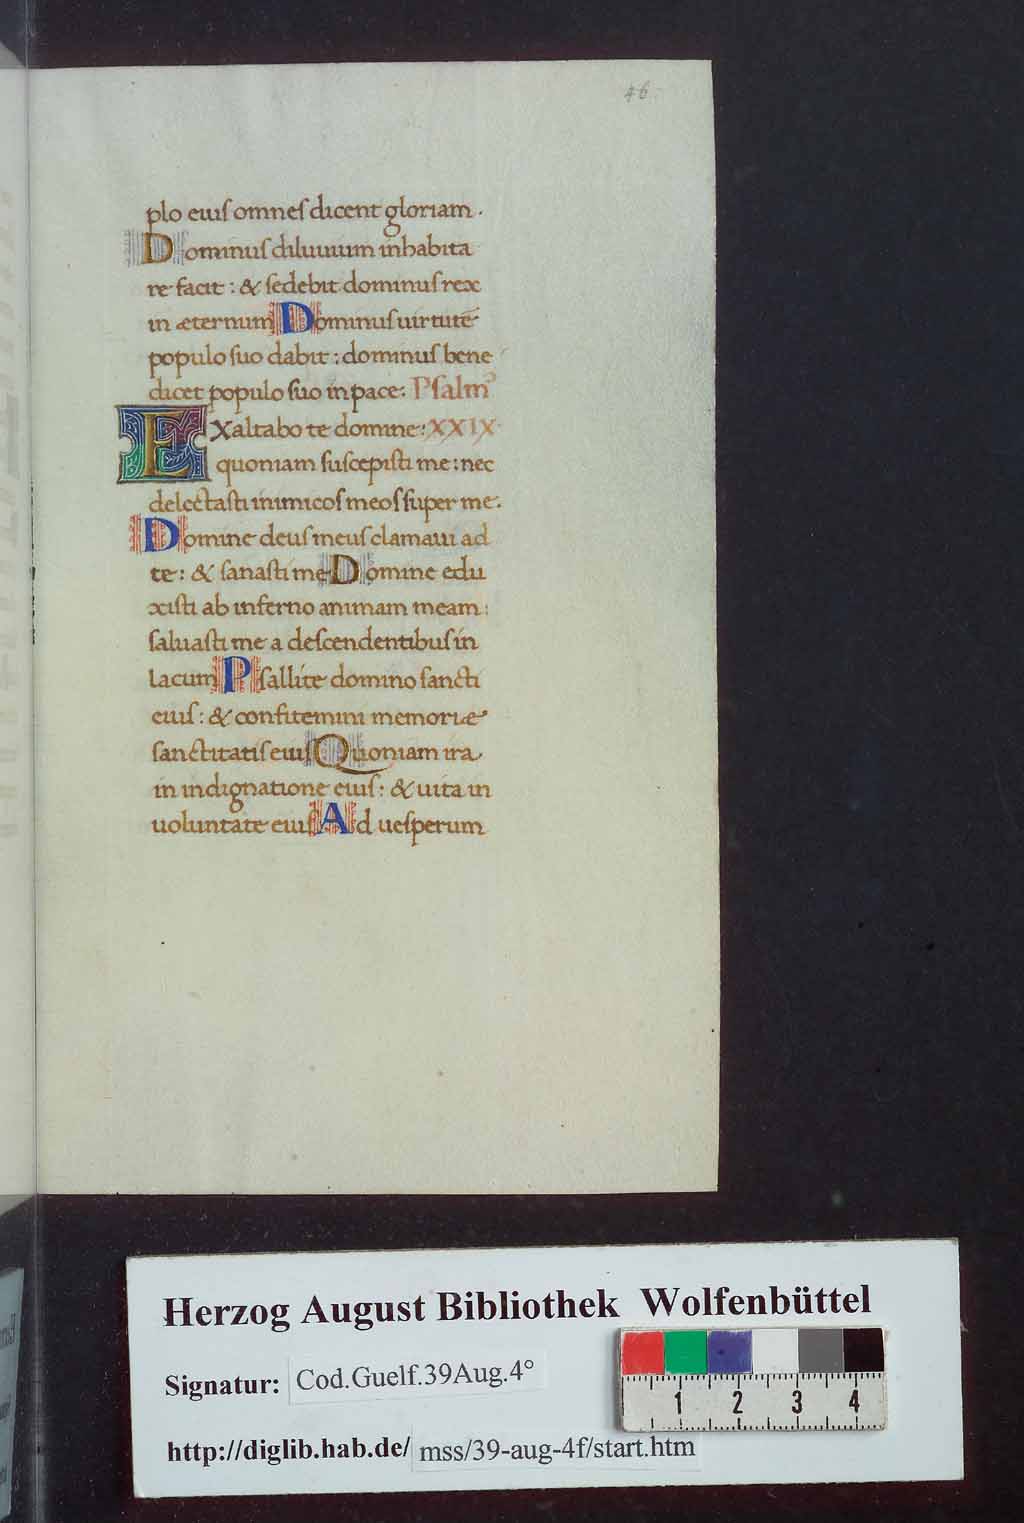 46
plo eiuſ omneſ dicent gloriam.
Dominuſ diluuium inhabita
re facit: & ſedebit dominuſ rex
in æternum Dominuſ uirtutē
populo ſuo dabit: dominuſ bene
dicet populo ſuo in pace: Pſalmꝰ
Exaltabo te domine: XXIX
quoniam ſuſcepiſti me: nec
delectaſti inimicoſ meoſ ſuper me.
Domine deuſ meuſ clamaui ad
te: & ſanaſti me Domine edu
xiſti ab inferno animam meam:
ſaluaſti me a deſcendentibuſ in
lacum Pſallite domino ſancti
eiuſ: & confitemini memoriæ
ſanctitatiſ eiuſ Quoniam ira
in indignatione eiuſ: & uita in
uoluntate eiuſ Ad ueſperum
Herzog August Bibliothek Wolfenbüttel
Signatur: Cod.Guelf.39Aug.4°
http://diglib.hab.de/ mss/39-aug-4f/start.htm
1 2 3 4